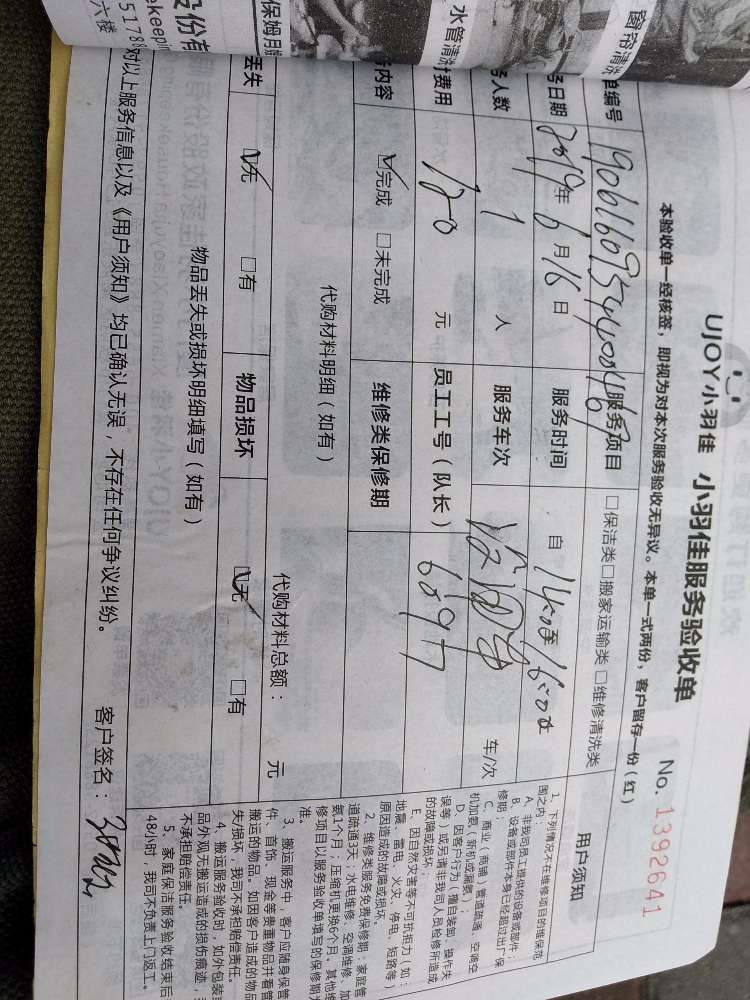 窗帘清洗
水管清洗
保姆月嫂
股份有
ekeepi
六楼
5178
UJOY小羽佳 小羽佳服务验收单
No. 1392641
本验收单一经核签，即视为对本次服务验收无异议。本单一式两份，客户留存一份(红)
单编号 服务项目 □保洁类□搬家运输类□维修清洗类
务日期 2019年6月16日 服务时间 自 14:00至16:00
务人数 1 人 服务车次 车/次
计费用 120 元 员工工号（队长） 6897
务内容 ☑完成 □未完成 维修类保修期
代购材料明细（如有） 代购材料总额： 元
丢失 ☑无 □有 物品损坏 ☑无 □有
物品丢失或损坏明细填写（如有）
对以上服务信息以及《用户须知》均已确认无误，不存在任何争议纠纷。 客户签名：
用户须知
1、下列情况不在维修项目的维保范
围之内：
A、非我司员工提供的设备或部件；
B、设备或部件本身已经超过出厂保
修期；
C、商业（商铺）管道疏通、空调空
机加氨（拆机或漏氨）；
D、因客户行为（擅自装卸、操作失
误等）或另请非我司人员检修所造成
的故障或损坏；
E、因自然灾害等不可抗拒力，如：
地震、雷电、火灾、停电、短路等
原因造成的故障或损坏。
2、维修类服务免费保修期：家庭管
道疏通3天；水电维修、空调维修、加
氨1个月；压缩机更换6个月，其他维
修项目以服务验收单填写的保修期为
准。
3、搬运服务中，客户应随身保管
件、首饰、现金等贵重物品并看管
搬运的物品。如因客户造成的物品
失/损坏，我司不承担赔偿责任。
4、搬运服务验收时，如外包装
品外观无搬运造成的损伤痕迹，
不承担赔偿责任。
5、家庭保洁服务验收结束后
48小时，我司不负责上门返工。